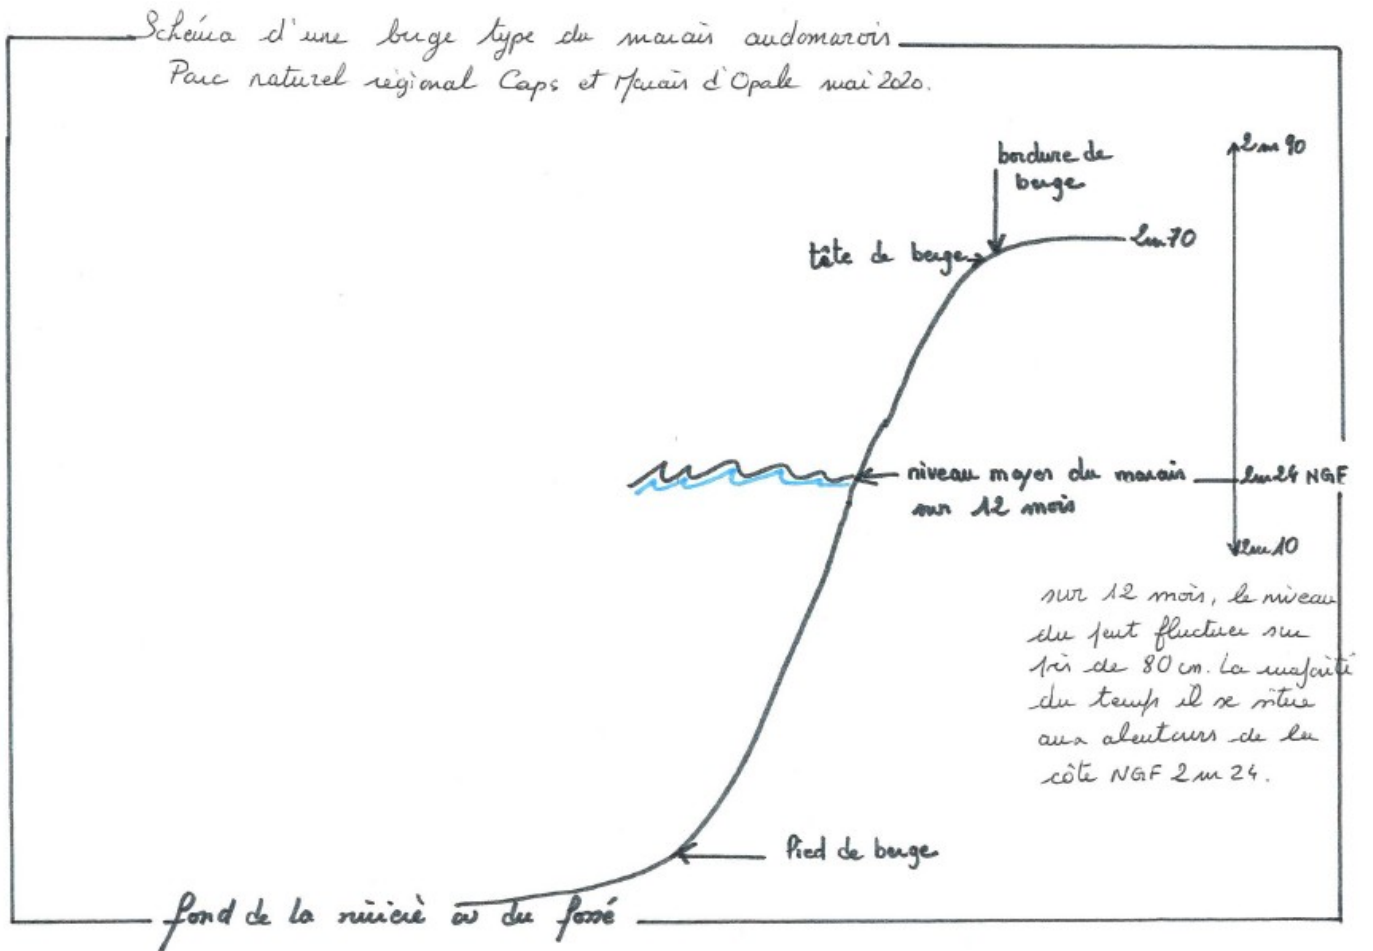 Schéma d'une berge type du marais audomarois
Parc naturel régional Caps et Marais d'Opale mai 2020.
bordure de
berge
2m90
tête de berge
2m70
niveau moyen du marais
sur 12 mois
2m24 NGF
2m10
sur 12 mois, le niveau
du peut fluctuer sur
près de 80 cm. La majorité
du temps il se situe
aux alentours de la
côte NGF 2m24.
Pied de berge
fond de la rivière ou du fossé